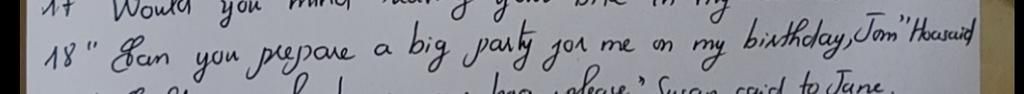 17 Would you mind
18 " Can you prepare a big party for me on my birthday, Tom" Hoa said
please" Susan said to Jane.